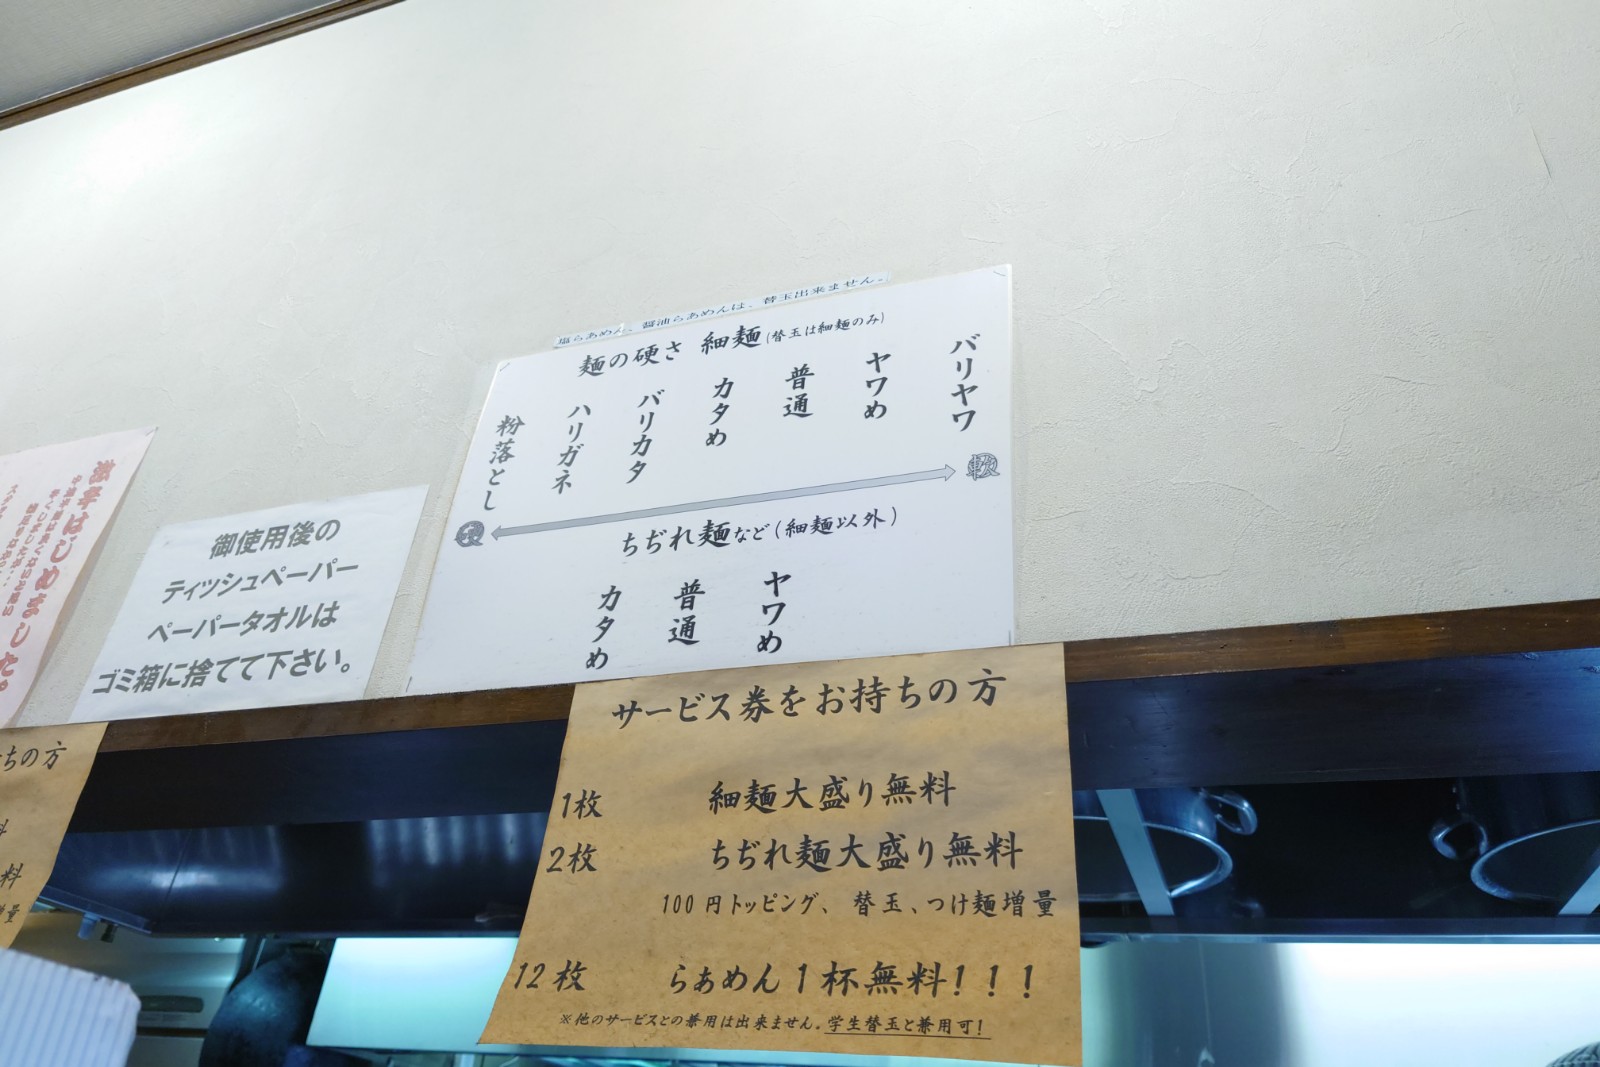 激辛はじめました。
御使用後の
ティッシュペーパー
ペーパータオルは
ゴミ箱に捨てて下さい。
塩らあめん、醤油らあめんは、替玉出来ません。
麺の硬さ 細麺(替玉は細麺のみ)
粉落とし
ハリガネ
バリカタ
カタめ
普通
ヤワめ
バリヤワ
硬
軟
ちぢれ麺など(細麺以外)
カタめ
普通
ヤワめ
ちの方
料
料
増量
サービス券をお持ちの方
1枚 細麺大盛り無料
2枚 ちぢれ麺大盛り無料
100円トッピング、替玉、つけ麺増量
12枚 らぁめん1杯無料!!!
※他のサービスとの兼用は出来ません。学生替玉と兼用可!